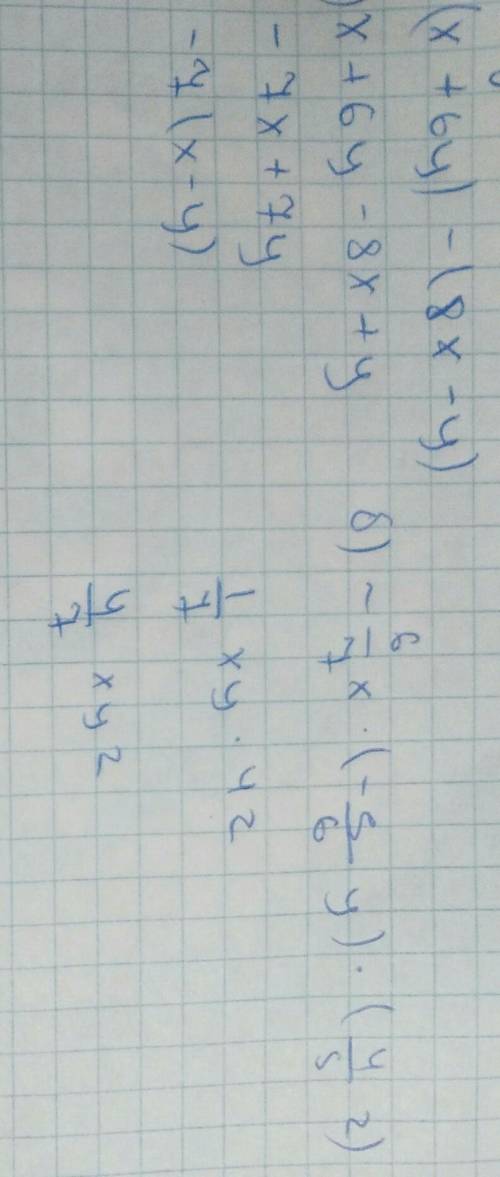 (x + 6y) - (8x - y)
x + 6y - 8x + y
- 7x + 7y
- 7(x - y)
б) - 6/7 x · (- 5/6 y) · (4/5 z)
1/7 xy · 4z
4/7 xyz